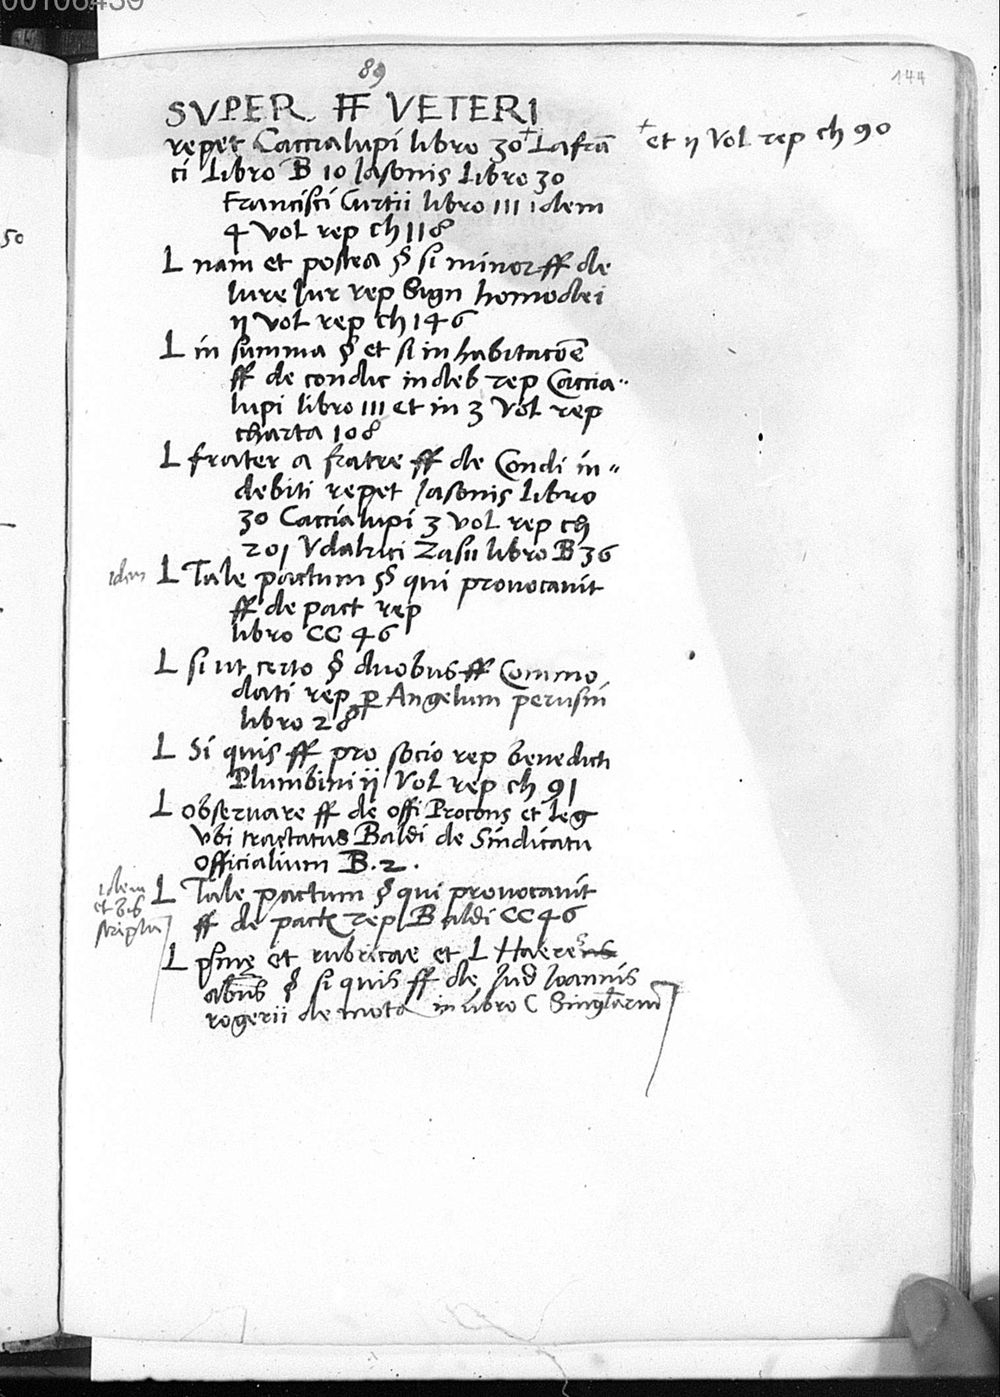 00106439
89
144
SVPER FF VETERI
repet Caccialupi libro 30 + Lafrā
+ et ij Vol rep ch 90
ci Libro B 10 Iasonis Libro 30
Francisci Curtii libro III idem
4 vol rep ch 118
50
L nam et postea § si minor ff de
Iure Iur rep Sign homodei
ij vol rep ch 146
L in summa § et si in habitacōe
ff de condic indeb rep Caccia-
lupi libro III et in 3 Vol rep
charta 108
L frater a fratre ff de Condi in-
debiti repet Iasonis Libro
30 Caccialupi 3 vol rep ch
201 Vdalrici Zasii libro B 36
idem
L Tale pactum § qui provocavit
ff de pact rep
libro CC 46
L si ut certo § duobus ff Commo
dati rep ꝑ Angelum perusin
libro 28
L Si quis ff pro socio rep benedicti
Plumbini ij Vol rep ch 91
L observare ff de offi Procons et leg
vbi tractatus Baldi de Sindicatu
officialium B. 2.
idem
et bis
scriptū
L Tale pactum § qui provocavit
ff de pact rep Baldi CC 46
L et rubricae et L Haere
§ si quis ff de Iud Ioannis
rogerii de in libro C Singlariū